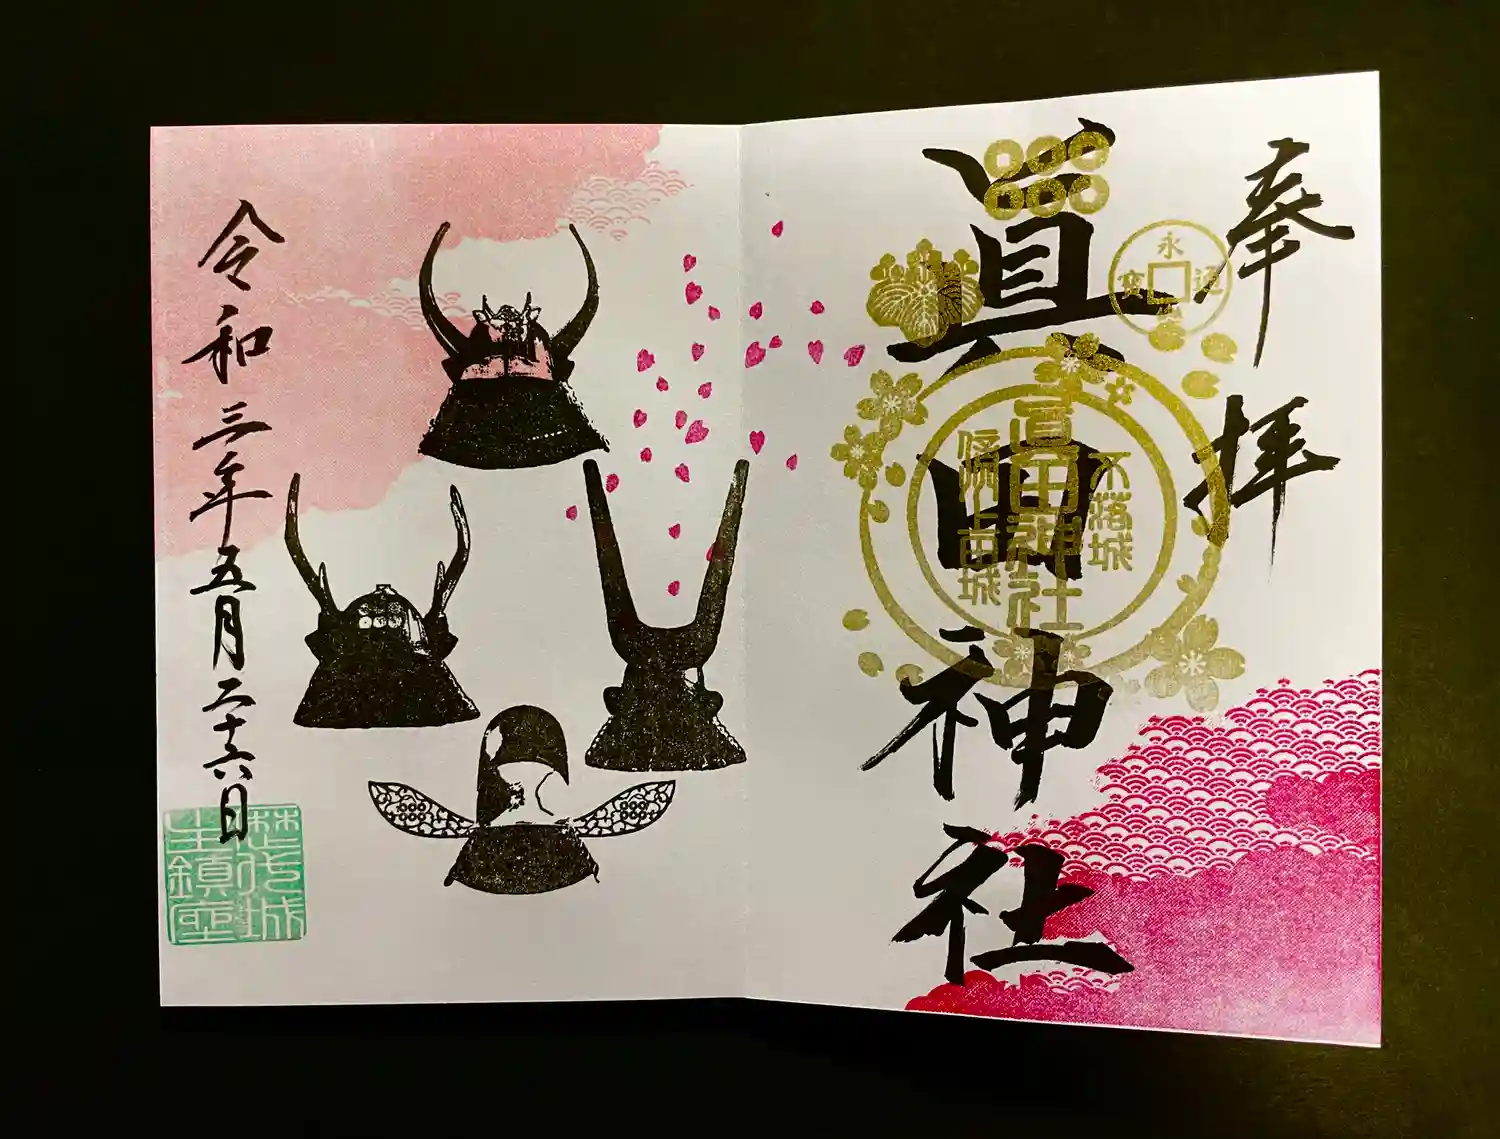 奉拝
眞田神社
永
通
寳
不落城
眞田神社
信州上田城
令和三年五月二十六日
城
生鎮座